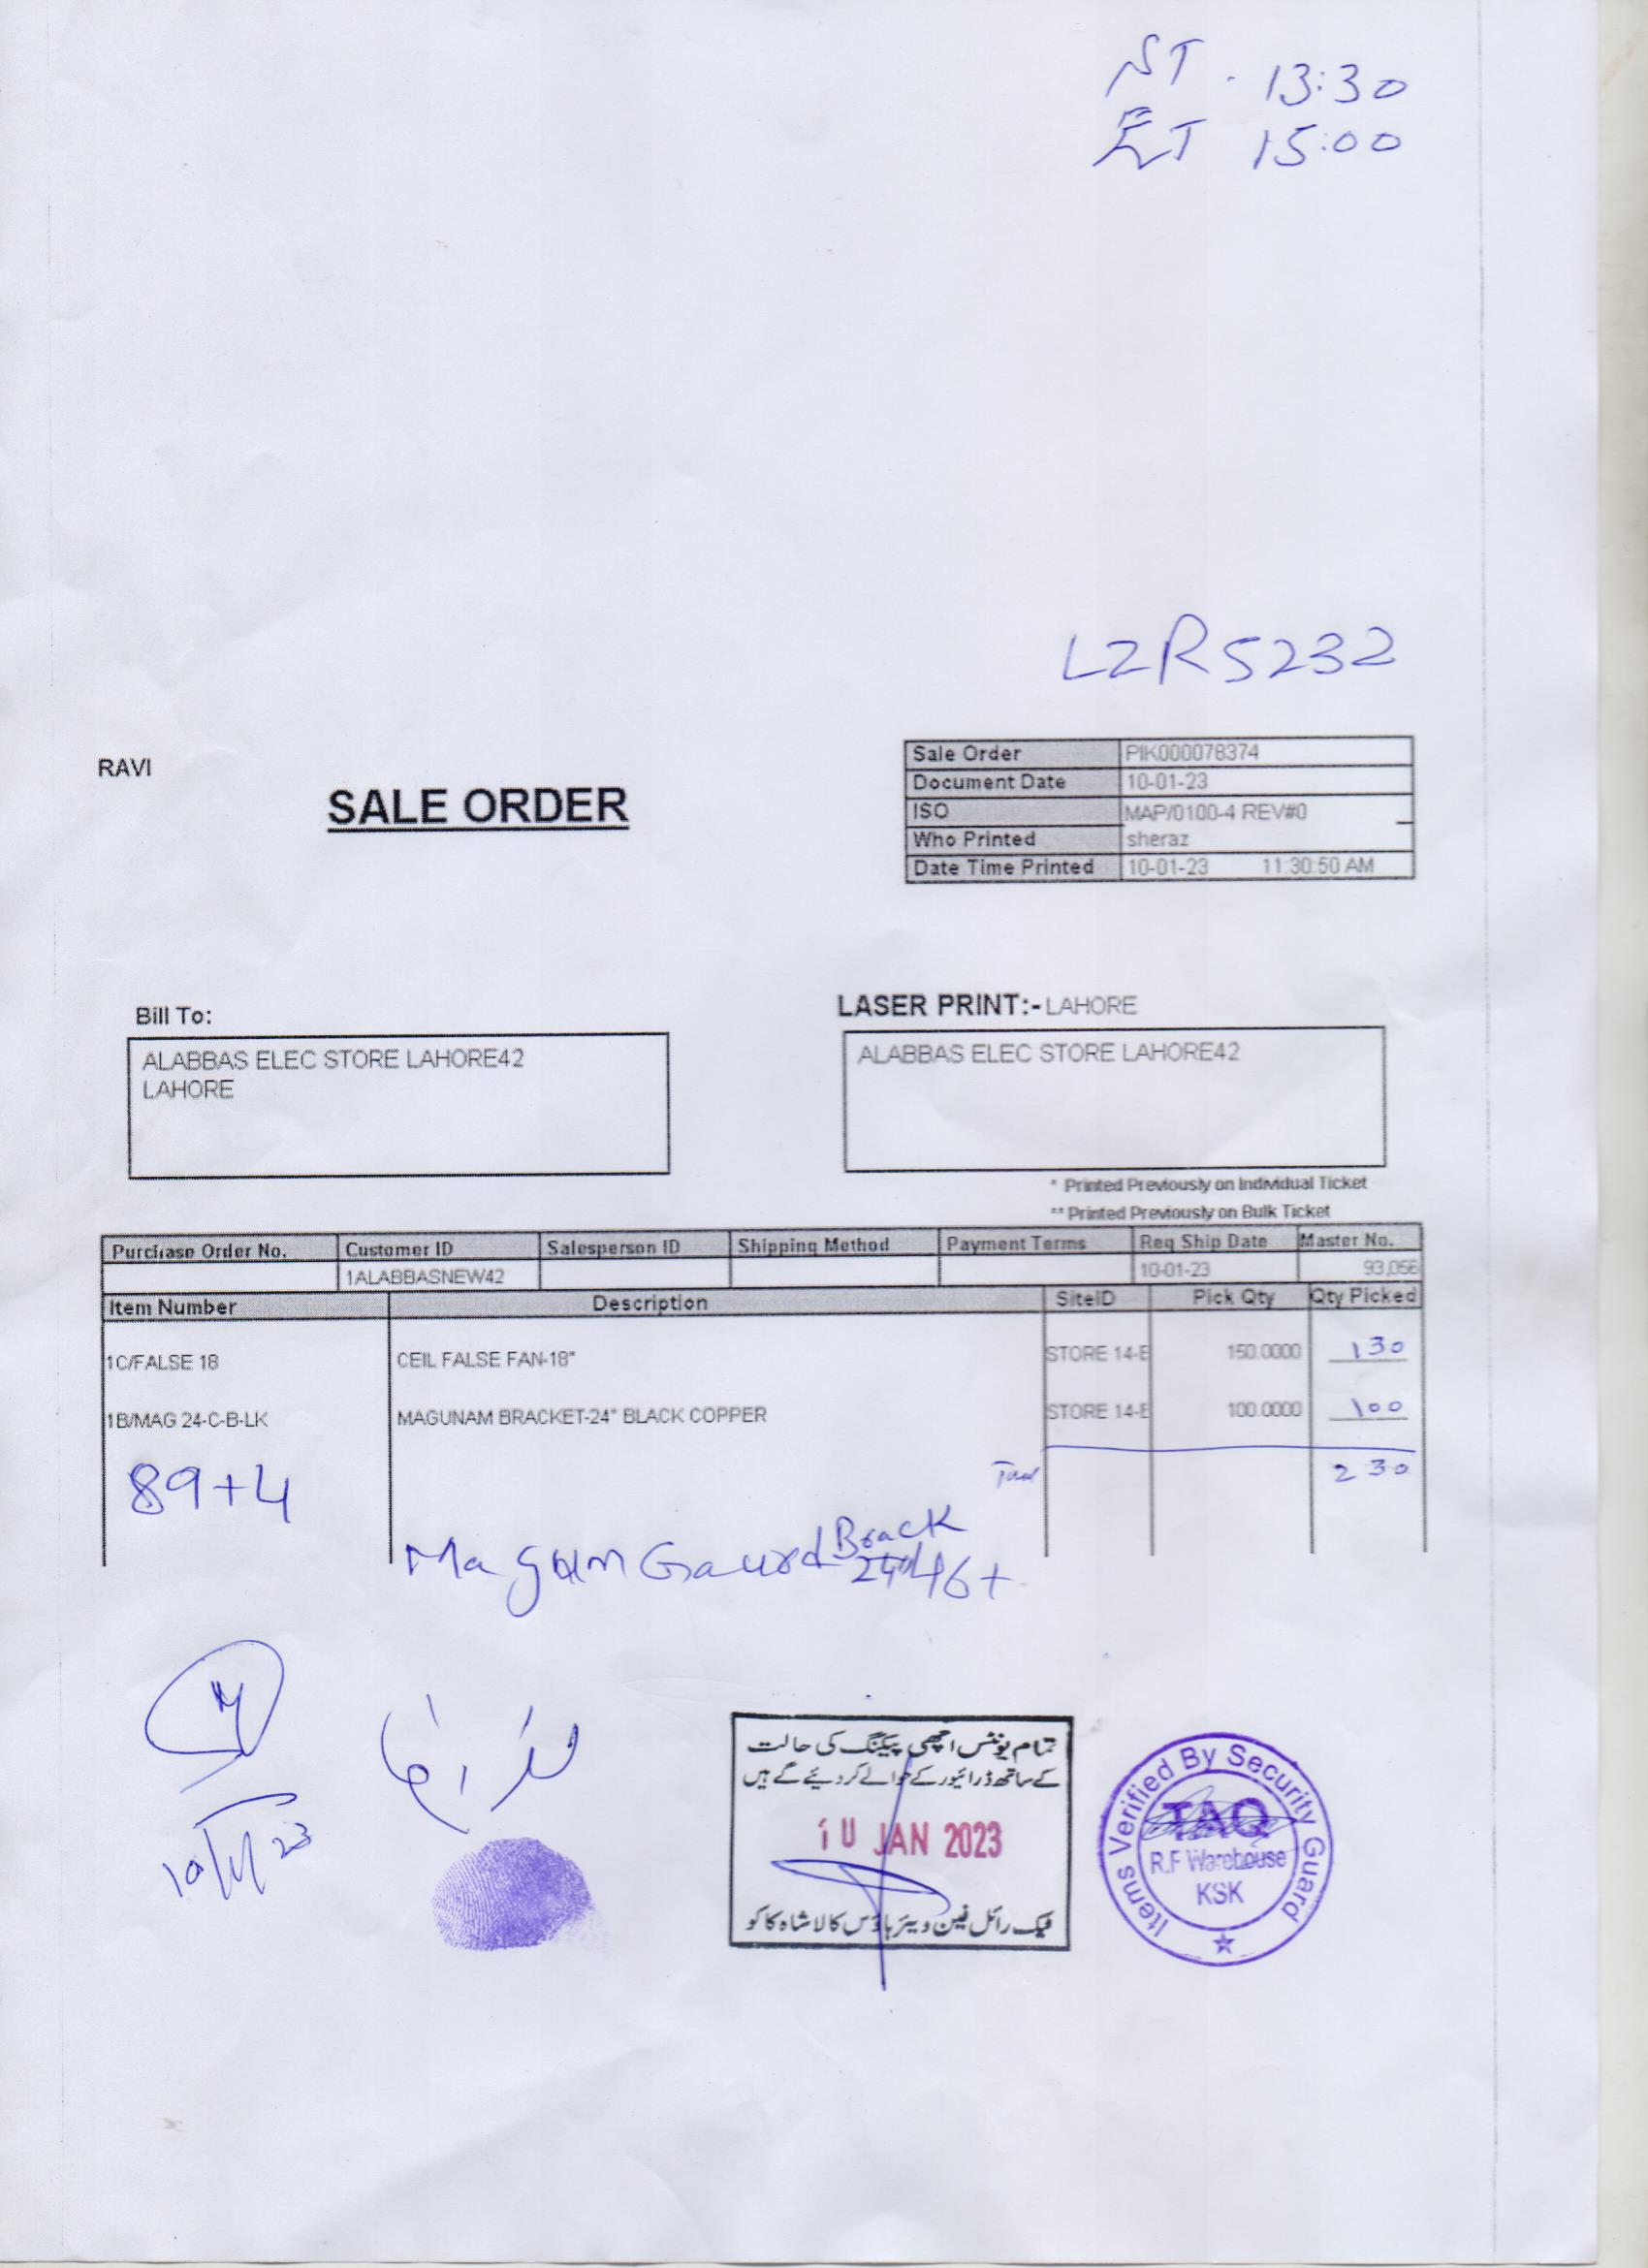 ST - 13:30
ET 15:00
LZR5232
RAVI
SALE ORDER
Sale Order PIK000078374
Document Date 10-01-23
ISO MAP/0100-4 REV#0
Who Printed sheraz
Date Time Printed 10-01-23 11:30:50 AM
Bill To:
ALABBAS ELEC STORE LAHORE42
LAHORE
LASER PRINT:- LAHORE
ALABBAS ELEC STORE LAHORE42
* Printed Previously on Individual Ticket
** Printed Previously on Bulk Ticket
Purchase Order No. Customer ID Salesperson ID Shipping Method Payment Terms Req Ship Date Master No.
1ALABBASNEW42 10-01-23 93,056
Item Number Description SiteID Pick Qty Qty Picked
1C/FALSE 18 CEIL FALSE FAN-18" STORE 14-E 150.0000 130
1B/MAG 24-C-B-LK MAGUNAM BRACKET-24" BLACK COPPER STORE 14-E 100.0000 100
Total 230
89+4
Magunm Gaurd Brack
24" 46+
10/1/23
تمام یونٹس اچھی پیکنگ کی حالت
کے ساتھ ڈرائیور کے حوالے کر دیئے گے ہیں
10 JAN 2023
پیک رائل فین ویئر ہاؤس کالا شاہ کاکو
Items Verified By Security Guard
TAQ
R.F Warehouse
KSK